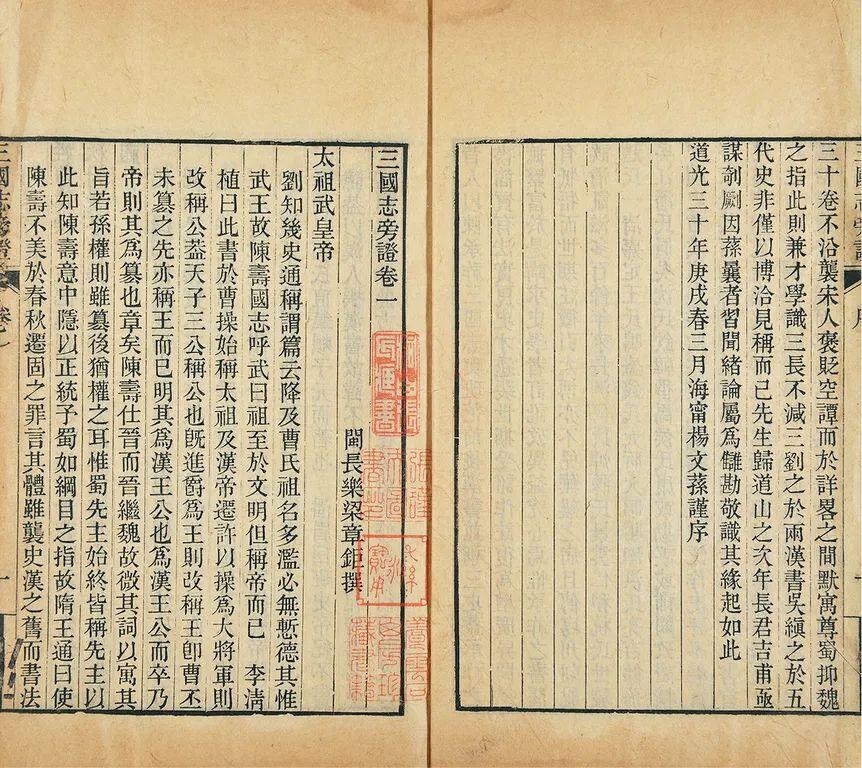 三十卷不沿襲宋人褒貶空譚而於詳畧之間默寓尊蜀抑魏
之指此則兼才學識三長不減三劉之於兩漢書吳縝之於五
代史非僅以博洽見稱而已先生歸道山之次年長君吉甫亟
謀剞劂因蓀曩者習聞緒論屬為讎勘敬識其緣起如此
道光三十年庚戌春三月海甯楊文蓀謹序
三國志旁證卷一
閩長樂梁章鉅撰
太祖武皇帝
劉知幾史通稱謂篇云降及曹氏祖名多濫必無慙德其惟
武王故陳壽國志呼武曰祖至於文明但稱帝而已　李清
植曰此書於曹操始稱太祖及漢帝遷許以操爲大將軍則
改稱公葢天子三公稱公也旣進爵爲王則改稱王卽曹丕
未篡之先亦稱王而已明其爲漢王公也爲漢王公而卒乃
帝則其爲篡也章矣陳壽仕晉而晉繼魏故微其詞以寓其
旨若孫權則雖篡後猶權之耳惟蜀先主始終皆稱先主以
此知陳壽意中隱以正統予蜀如綱目之指故隋王通曰使
陳壽不美於春秋遷固之罪言其體雖襲史漢之舊而書法
三國志旁證
卷一
一